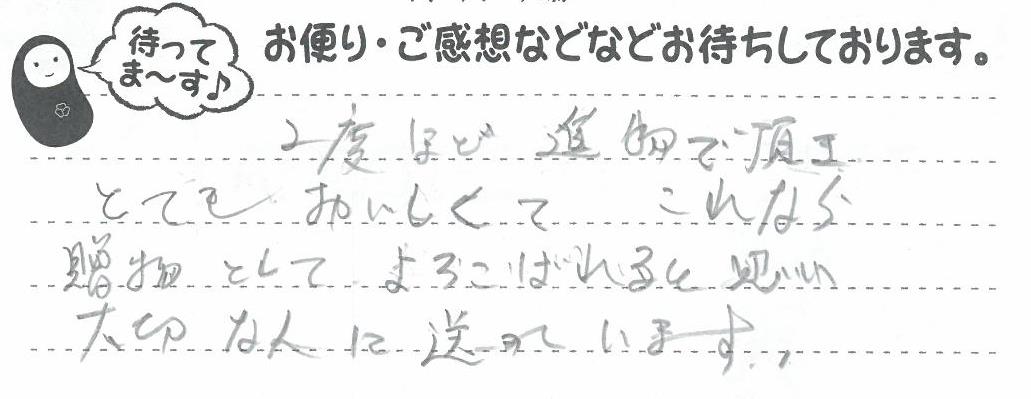 待って
ま〜す♪
お便り・ご感想などなどお待ちしております。
2度ほど 進物で頂エ
とても おいしくて これなら
贈物として よろこばれると思い
大切な人に送っています。